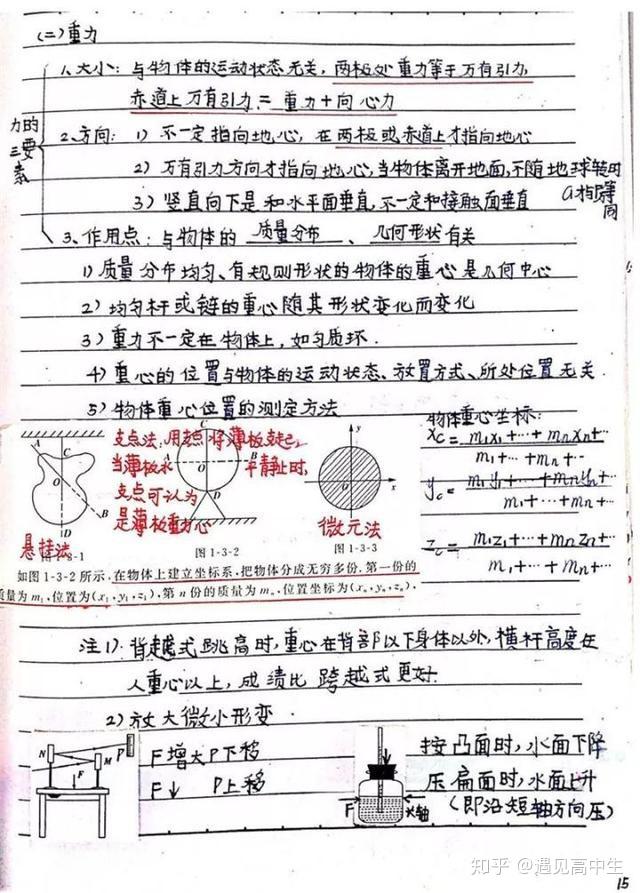 (二)重力
力的三要素
1、大小: 与物体的运动状态无关, 两极处重力等于万有引力,
赤道上万有引力 = 重力+向心力
2、方向: 1) 不一定指向地心, 在两极或赤道上才指向地心
2) 万有引力方向才指向地心, 当物体离开地面, 不随地球转时
3) 竖直向下是和水平面垂直, 不一定和接触面垂直
3、作用点: 与物体的 质量分布、几何形状有关
1) 质量分布均匀、有规则形状的物体的重心是几何中心
2) 均匀杆或链的重心随其形状变化而变化
3) 重力不一定在物体上, 如匀质环.
4) 重心的位置与物体的运动状态、放置方式、所处位置无关.
5) 物体重心位置的测定方法
A C O D B
悬挂法
支点法: 用支点将薄板支起,
当薄板水平静止时,
支点可认为
是薄板重心
A C O B D
图 1-3-2
y O x
微元法
图 1-3-3
物体重心坐标:
xc = m1x1+…+mnxn+… / m1+…+mn+…
yc = m1y1+…+mnyn+… / m1+…+mn+…
zc = m1z1+…+mnzn+… / m1+…+mn+…
如图 1-3-2 所示, 在物体上建立坐标系, 把物体分成无穷多份, 第一份的
质量为 m1, 位置为(x1, y1, z1), 第 n 份的质量为 mn, 位置坐标为(xn, yn, zn),
注 1). 背越式跳高时, 重心在背部以下身体以外, 横杆高度在
人重心以上, 成绩比 跨越式更好.
2) 放大微小形变
N M F P
F增大P下移
F↓ P上移
F
长轴
按凸面时, 水面下降
压扁面时, 水面上升
(即沿短轴方向压)
知乎 @遇见高中生
15